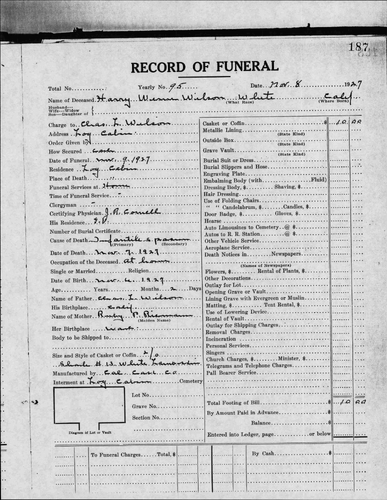 187
RECORD OF FUNERAL
Total No. Yearly No. 95 Date Nov. 8 1927
Name of Deceased Harry Wilson White Calif
(What Race) (Where Born)
Husband—
Wife—Widow
Son—Daughter of
Charge to Chas. L. Wilson
Address Log Cabin
Order Given
How Secured
Date of Funeral Nov. 9, 1927
Residence Log Cabin
Place of Death
Funeral Services at Home
Time of Funeral Service
Clergyman
Certifying Physician J. R.
His Residence
Number of Burial Certificate
Cause of Death Infantile spasm
(Primary) (Secondary)
Date of Death Nov. 7, 1927
Occupation of the Deceased at home
Single or Married Religion
Date of Birth Nov. 6, 1927
Age Years Months 2 Days
Name of Father Chas. L. Wilson
His Birthplace
Name of Mother Ruby P.
(Maiden Name)
Her Birthplace Wash.
Body to be Shipped to
Size and Style of Casket or Coffin 2/0
White
Manufactured by Cal. Cask. Co.
Interment at Log Cabin Cemetery
Lot No.
Grave No.
Section No.
Diagram of Lot or Vault
Casket or Coffin $ 10 00
Metallic Lining
(State Kind)
Outside Box
(State Kind)
Grave Vault
(State Kind)
Burial Suit or Dress
Burial Slippers and Hose
Engraving Plate
Embalming Body (with Fluid)
Dressing Body, $ Shaving, $
Hair Dressing
Use of Folding Chairs
" " Candelabrum, $ Candles, $
Door Badge, $ Gloves, $
Hearse
Auto Limousines to Cemetery @ $
Autos to R. R. Station @ $
Other Vehicle Service
Aeroplane Service
Death Notices in Newspapers
(Names of Newspapers)
Flowers, $ Rental of Plants, $
Other Decorations
Outlay for Lot
Opening Grave or Vault
Lining Grave with Evergreen or Muslin
Matting, $ Tent Rental, $
Use of Lowering Device
Rental of Vault
Outlay for Shipping Charges
Removal Charges
Incineration
Personal Services
Singers
Church Charges, $ Minister, $
Telegrams and Telephone Charges
Pall Bearer Service
Total Footing of Bill $ 10 00
By Amount Paid in Advance
Balance $
Entered into Ledger, page or below
To Funeral Charges, Total $ By Cash $